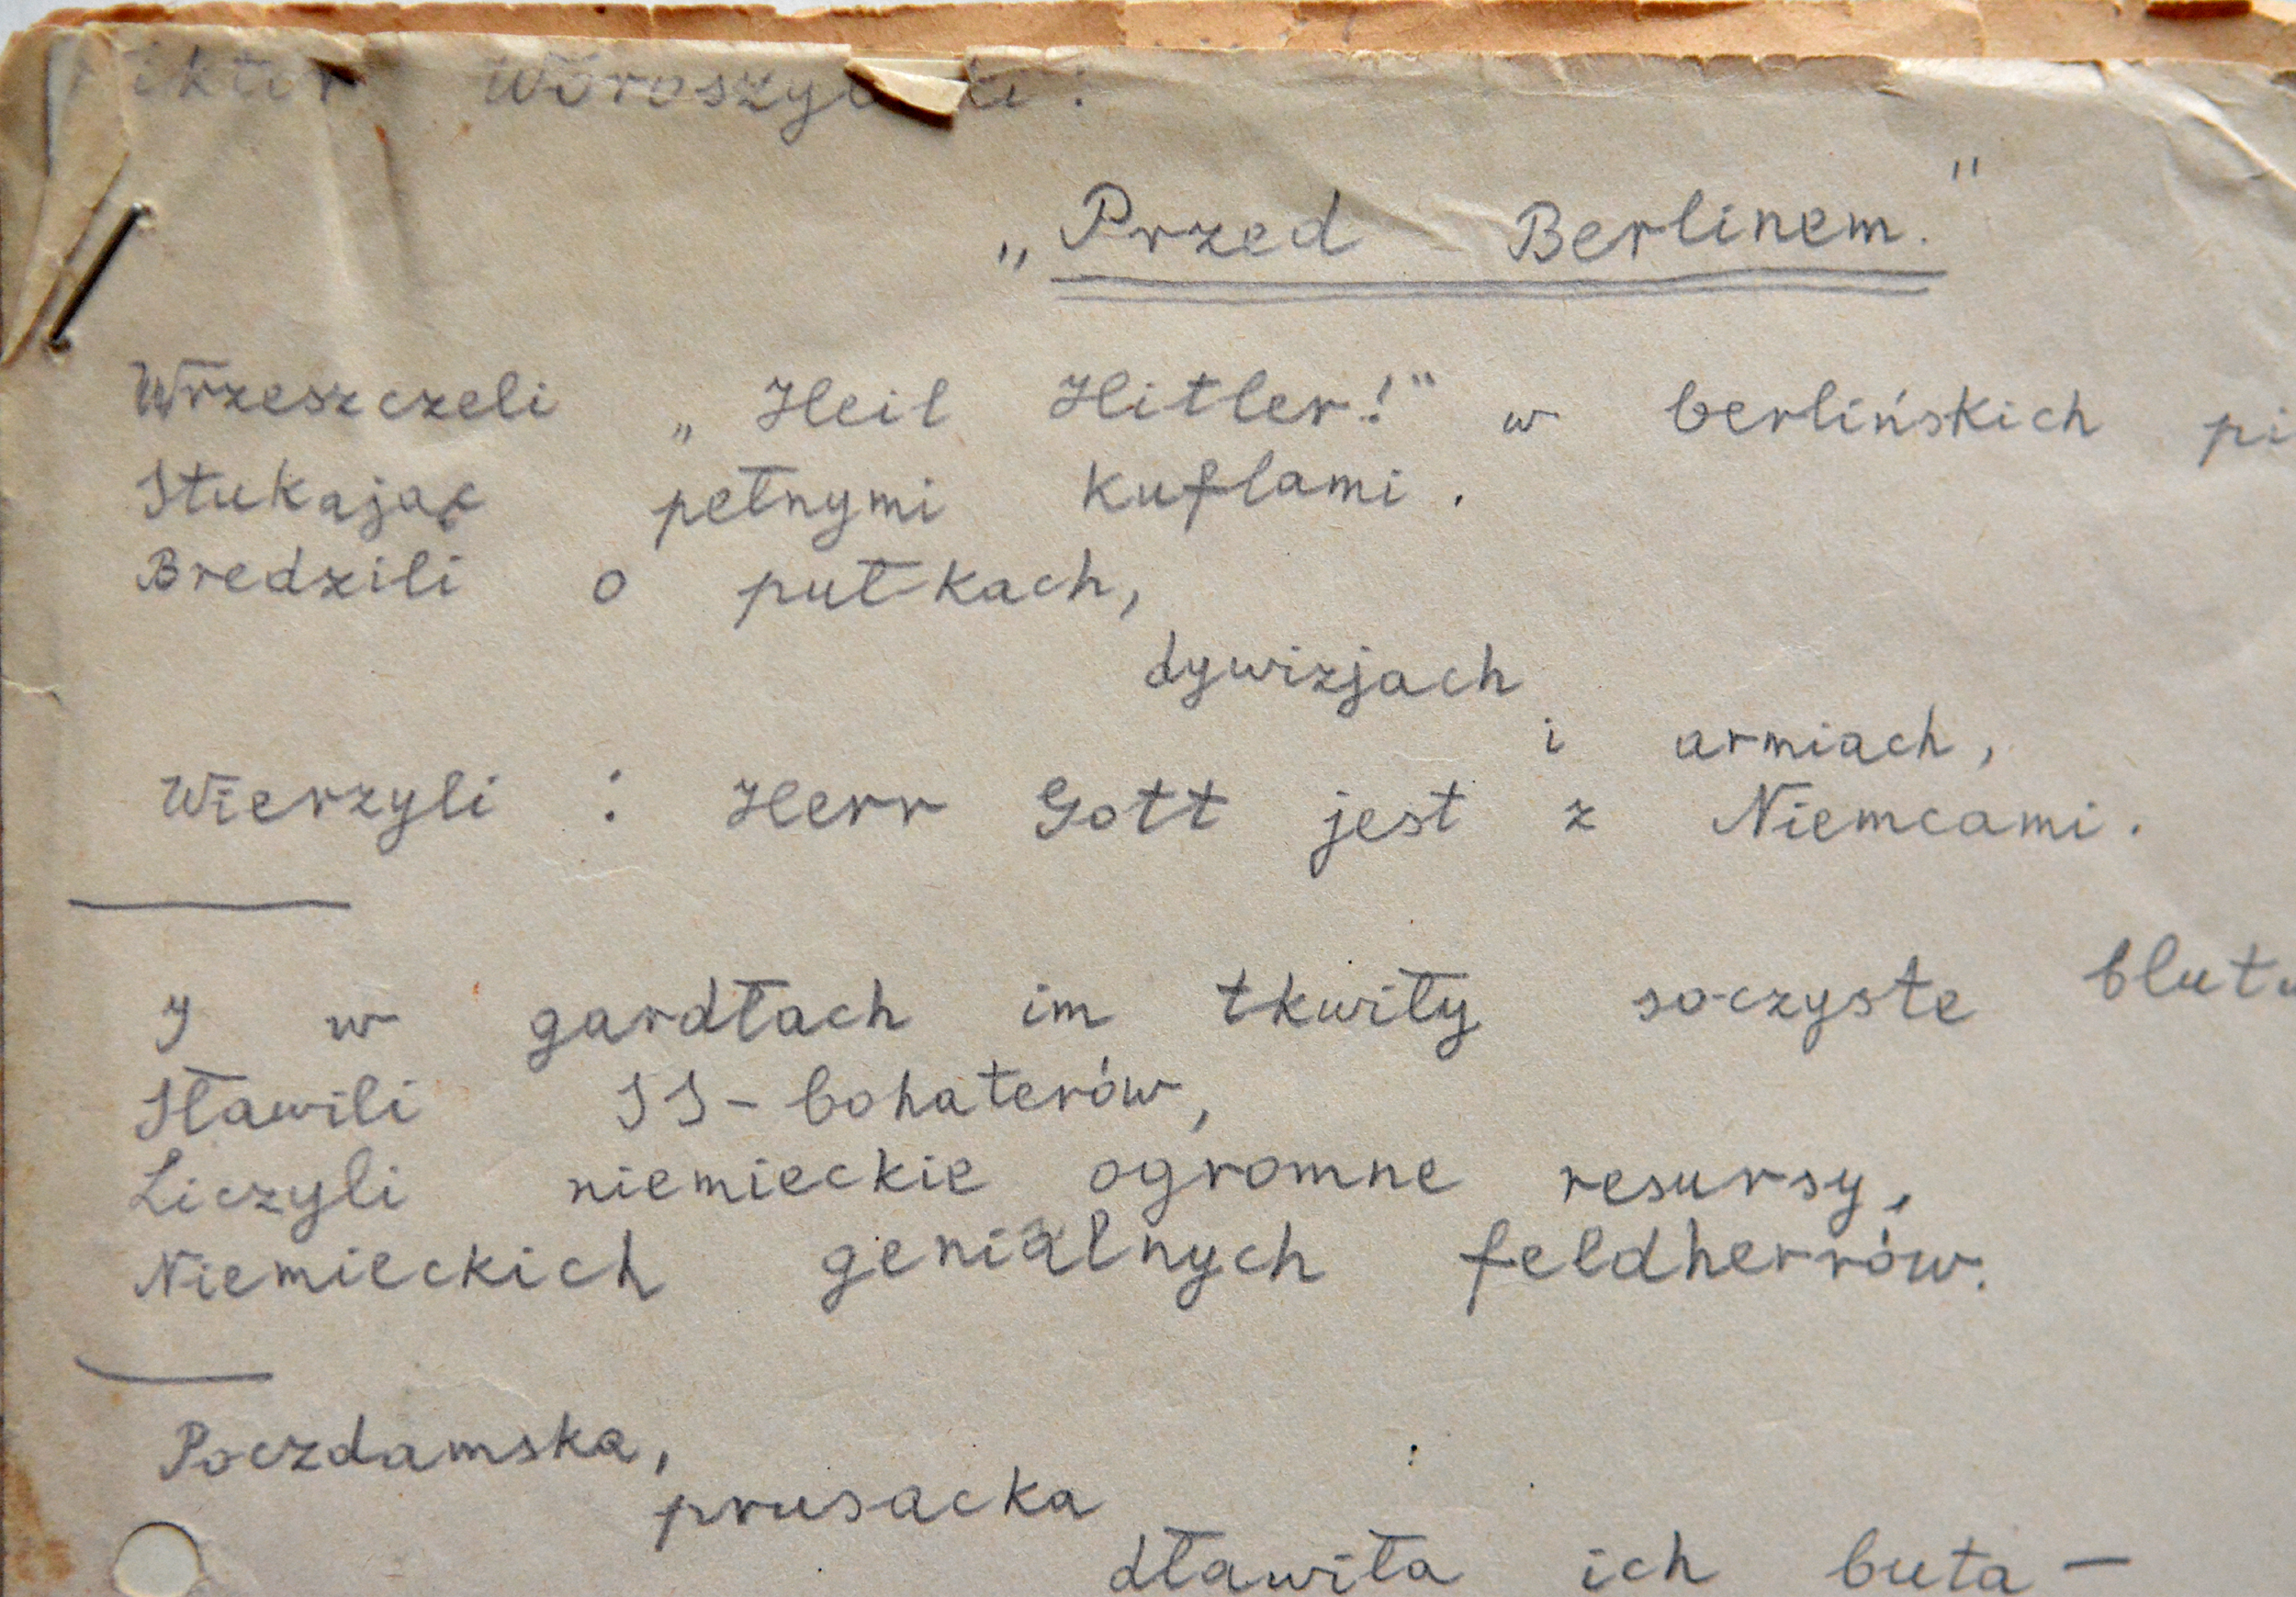 Wiktor Woroszylski:
„Przed Berlinem."
Wrzeszczeli „Heil Hitler!" w berlińskich pi
Stukając pełnymi kuflami.
Bredzili o pułkach,
dywizjach
i armiach,
Wierzyli: Herr Gott jest z Niemcami.
I w gardłach im tkwiły soczyste
Sławili SS-bohaterów,
Liczyli niemieckie ogromne resursy,
Niemieckich genialnych feldherrów.
Poczdamska,
prusacka
dławiła ich buta —